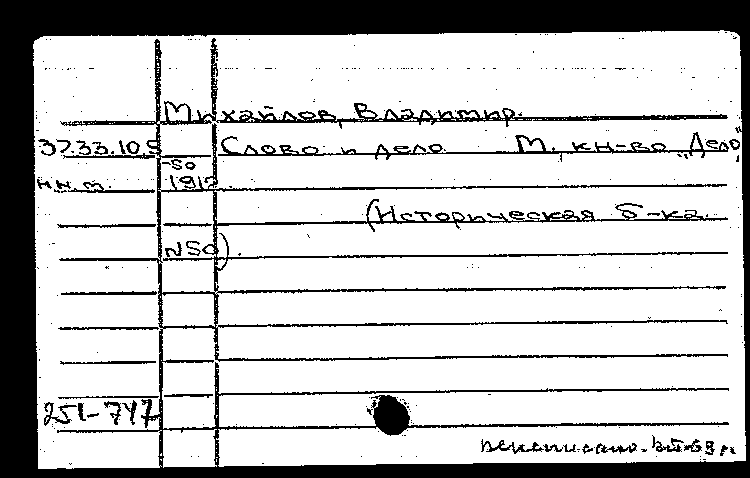 Михайлов, Владимир.
37.33.10.5 Слово и дело М., кн-во „Дело“,
-50
н.н.т. 1912.
(Историческая б-ка.
N50).
251-747